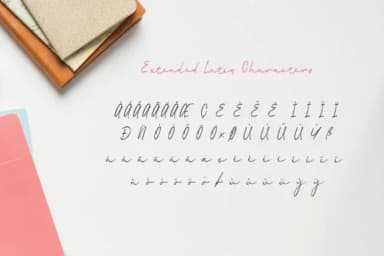 Extended Latin Characters
ÀÁÂÃÄÅÆ Ç È É Ê Ë Ì Í Î Ï
Ð Ñ Ò Ó Ô Õ Ö × Ø Ù Ú Û Ü Ý ß
à á â ã ä å æ ç è é ê ë ì í î ï